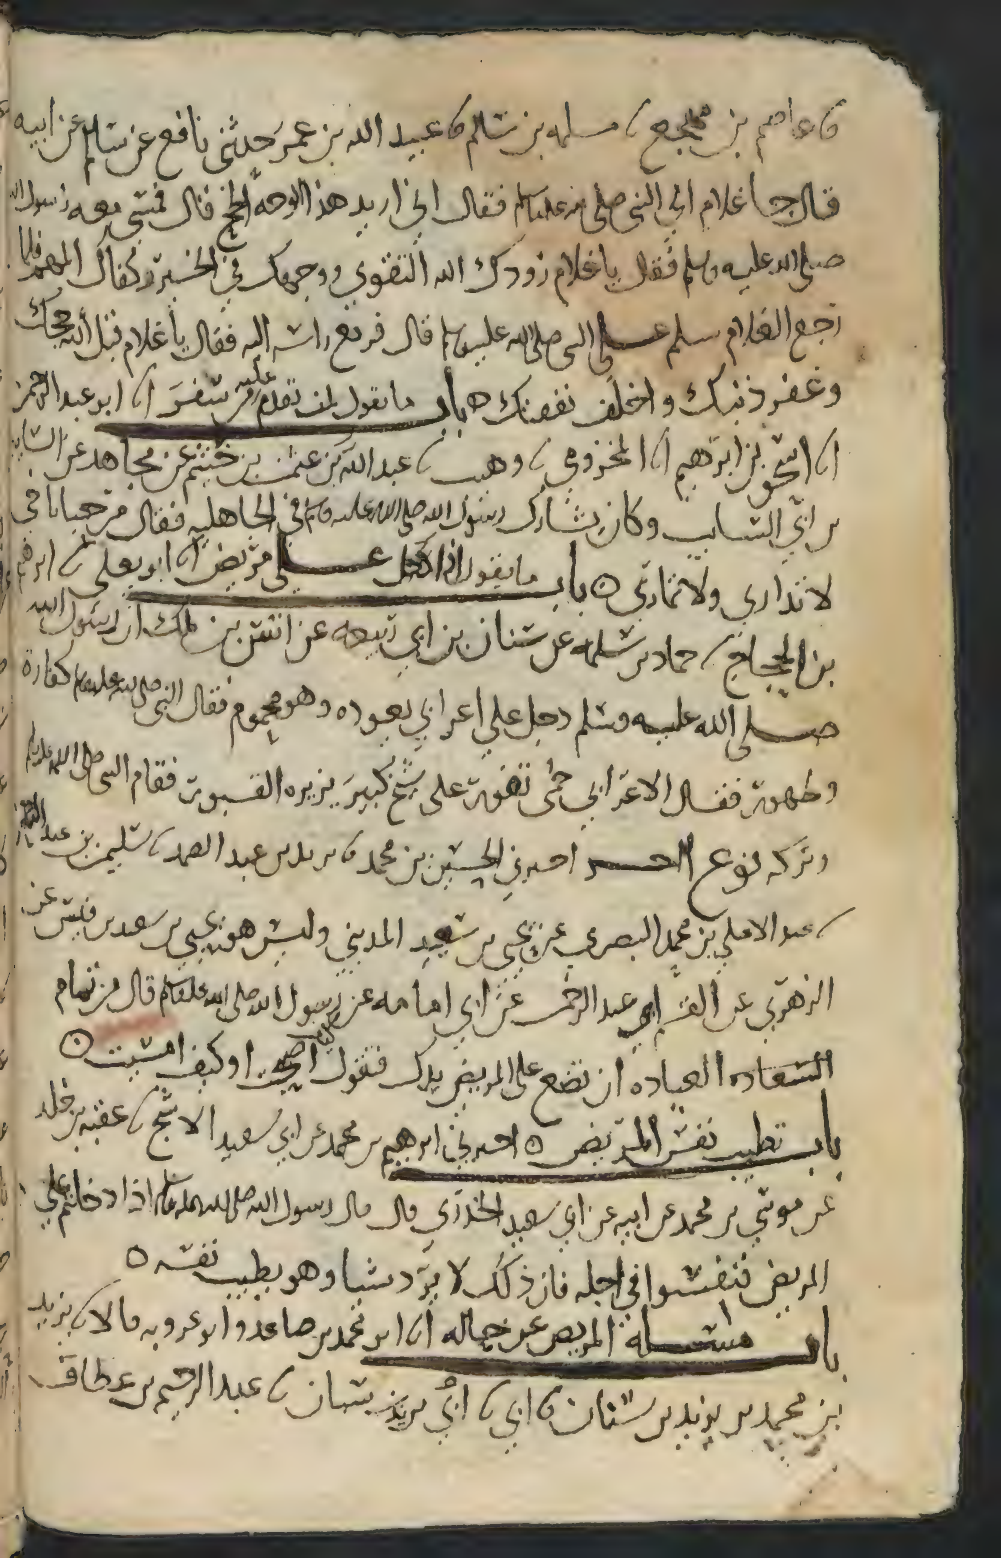 عاصم بن مهجع مسلمه بن سالم عبيد الله بن عمر حدثني نافع عن سالم عن ابيه
قال جا غلام الي النبي صلى الله عليه وسلم فقال اني اريد هذا الوجه الحج قال فمشى معه رسول الله
صلى الله عليه وسلم فقال يا غلام زودك الله التقوي ووجهك في الخير وكفاك المهم فلما
رجع الغلام سلم علي النبي صلى الله عليه وسلم قال فرفع راسه اليه فقال يا غلام قبل الله حجك
وغفر ذنبك واخلف نفقتك ه باب ما يقول لمن تقدم عليه من سفر انا ابو عبد الرحمن
انا اسحق بن ابرهيم انا المخزومي وهيب عبد الله بن عثمن بن خثيم عن مجاهد عن السايب
بن ابي السايب وكان يشارك رسول الله صلى الله عليه وسلم في الجاهليه فقال مرحبا باخي
لا تداري ولا تماري ه باب ما يقول اذا دخل علي مريض انا ابو يعلي ابرهيم
بن الحجاج حماد بن سلمه عن سنان بن ابي ربيعه عن انس بن ملك ان رسول الله
صلى الله عليه وسلم دخل علي اعرابي يعوده وهو محموم فقال النبي صلى الله عليه وسلم كفارة
وطهور فقال الاعرابي حمى تفور على شيخ كبير يزيره القبور فقام النبي صلى الله عليه وسلم
وتركه نوع اخر اخبرني الحسين بن محمد يزيد بن عبد الصمد سليمن بن عبد الرحمن
عبد الاعلي بن محمد البصري عن يحيى بن سعيد المديني وليس هو يحيى بن سعيد بن قيس عن
الزهري عن القسم ابي عبد الرحمن عن ابي امامه عن رسول الله صلى الله عليه وسلم قال من تمام
العياده ان تضع على المريض يدك فتقول كيف اصبحت او كيف امسيت ه
باب تطيب نفس المريض ه اخبرني ابرهيم بن محمد عن ابي سعيد الاشج عقبه بن خلد
عن موسى بن محمد عن ابيه عن ابي سعيد الخدري قال قال رسول الله صلى الله عليه وسلم اذا دخلتم علي
المريض فنفسوا في اجله فان ذلك لا يرد شيا وهو يطيب نفسه ه
باب مسله المريض عن حاله انا ابو محمد بن صاعد وابو عروبه قالا يزيد
بن محمد بن يزيد بن سنان ابي ابي يزيد بن سنان عبد الرحيم بن عطاف